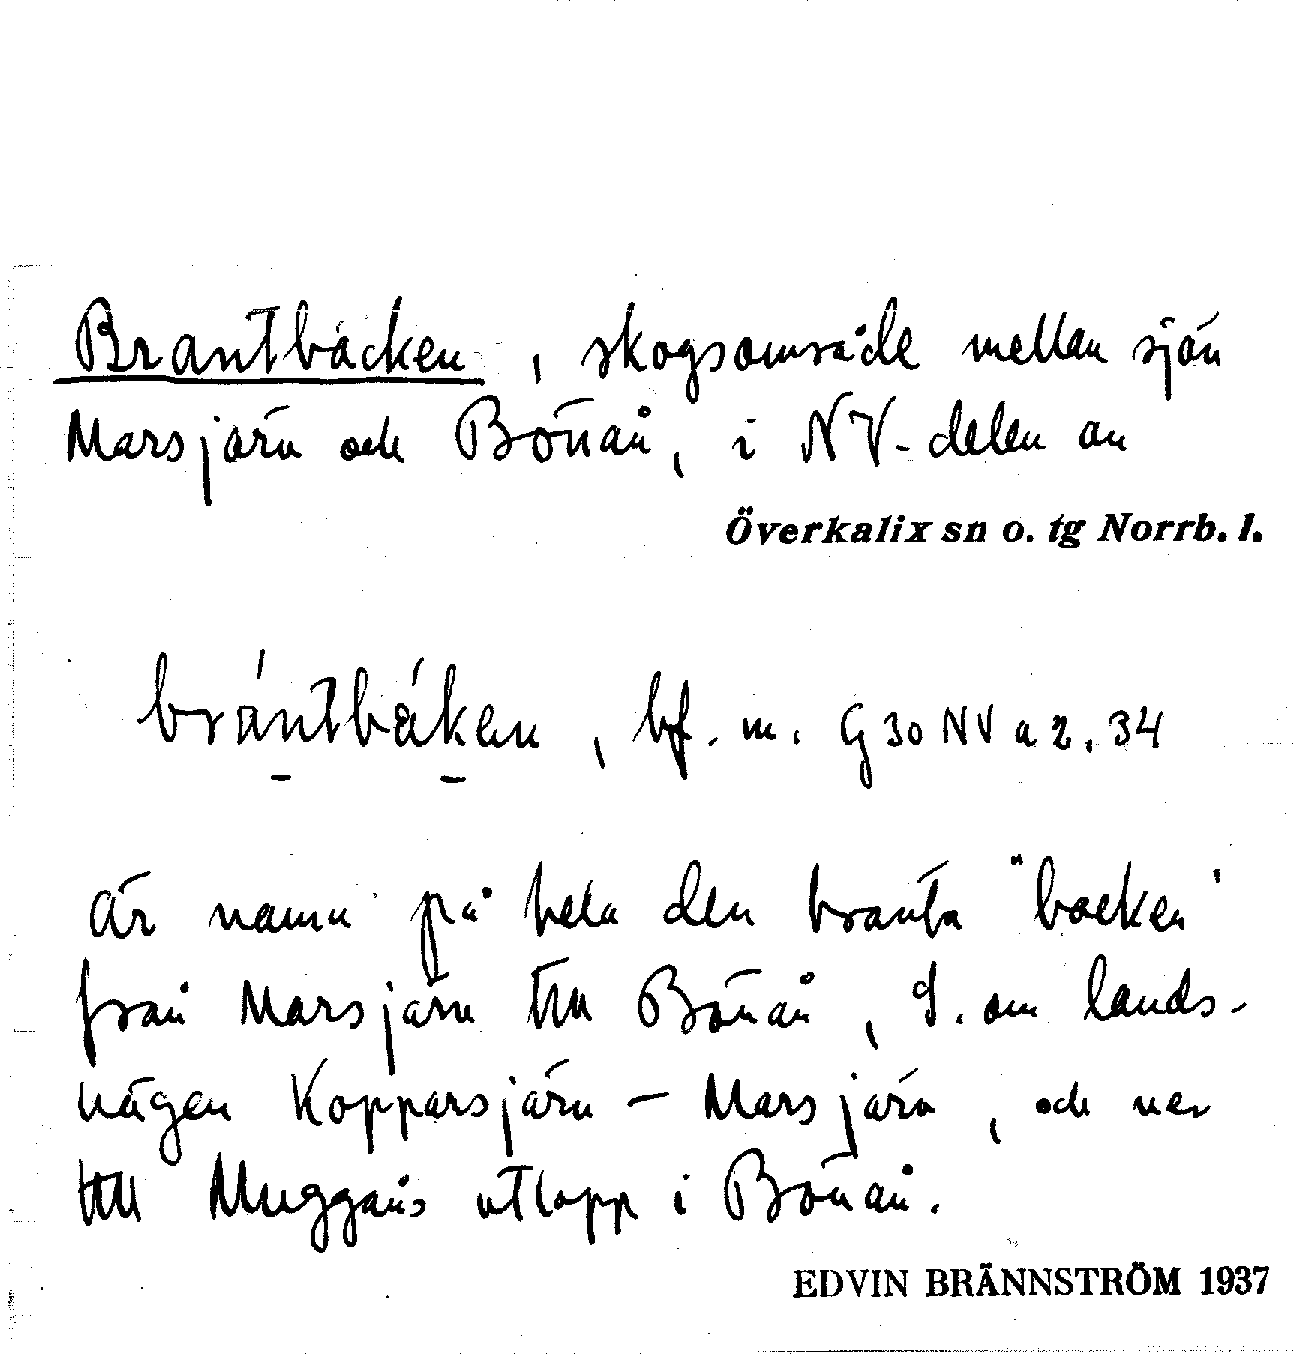 Brantbäcken, skogsområde mellan sjön
Marsjärn och Bönån, i NV-delen av
Överkalix sn o. tg Norrb. l.
brántbák̠en, bf. m. G 30 NV a 2. 34
är namn på hela den branta "backen"
från Marsjärn till Bönån, S. om lands-
vägen Kopparsjärn - Marsjärn, och ner
till Muggåns utlopp i Bönån.
EDVIN BRÄNNSTRÖM 1937